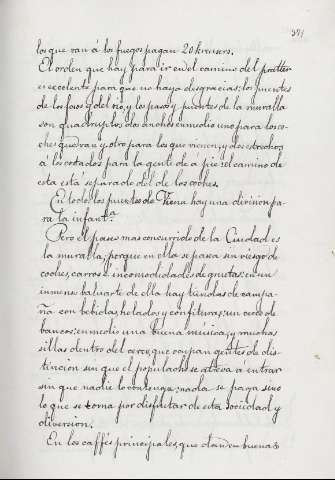 371
los que van á los fuegos pagan 20 kreusers.
El orden que hay para ir en el camino del pratter
es eccelente para que no haya desgracias; los puentes
de los fosos y del rio, y los pasos y puentes de la muralla
son quadruplos; dos anchos en medio uno para los co-
ches que van y otro para los que vienen, y dos estrechos
á los costados para la gente de a pie: el camino de
esta está separado del de los coches.
En todos los puentes de Viena hay una division pa-
ra la infant.ª
Pero el paseo mas concurrido de la Ciudad es
la muralla, porque en ella se pasea sin riesgo de
coches, carros é incomodidades de grietas: en un
inmenso baluarte de ella hay tiendas de campa-
ña con bebidas, helados y confituras: un cerco de
bancos: en medio una buena música, y muchas
sillas dentro del cerco, que ocupan gentes de dis-
tincion sin que el populacho se atreva a entrar
sin que nadie lo contenga: nada se paga sino
lo que se toma por disfrutar de esta sociedad y
diversion.
En los caffés principales, que dan en buenas